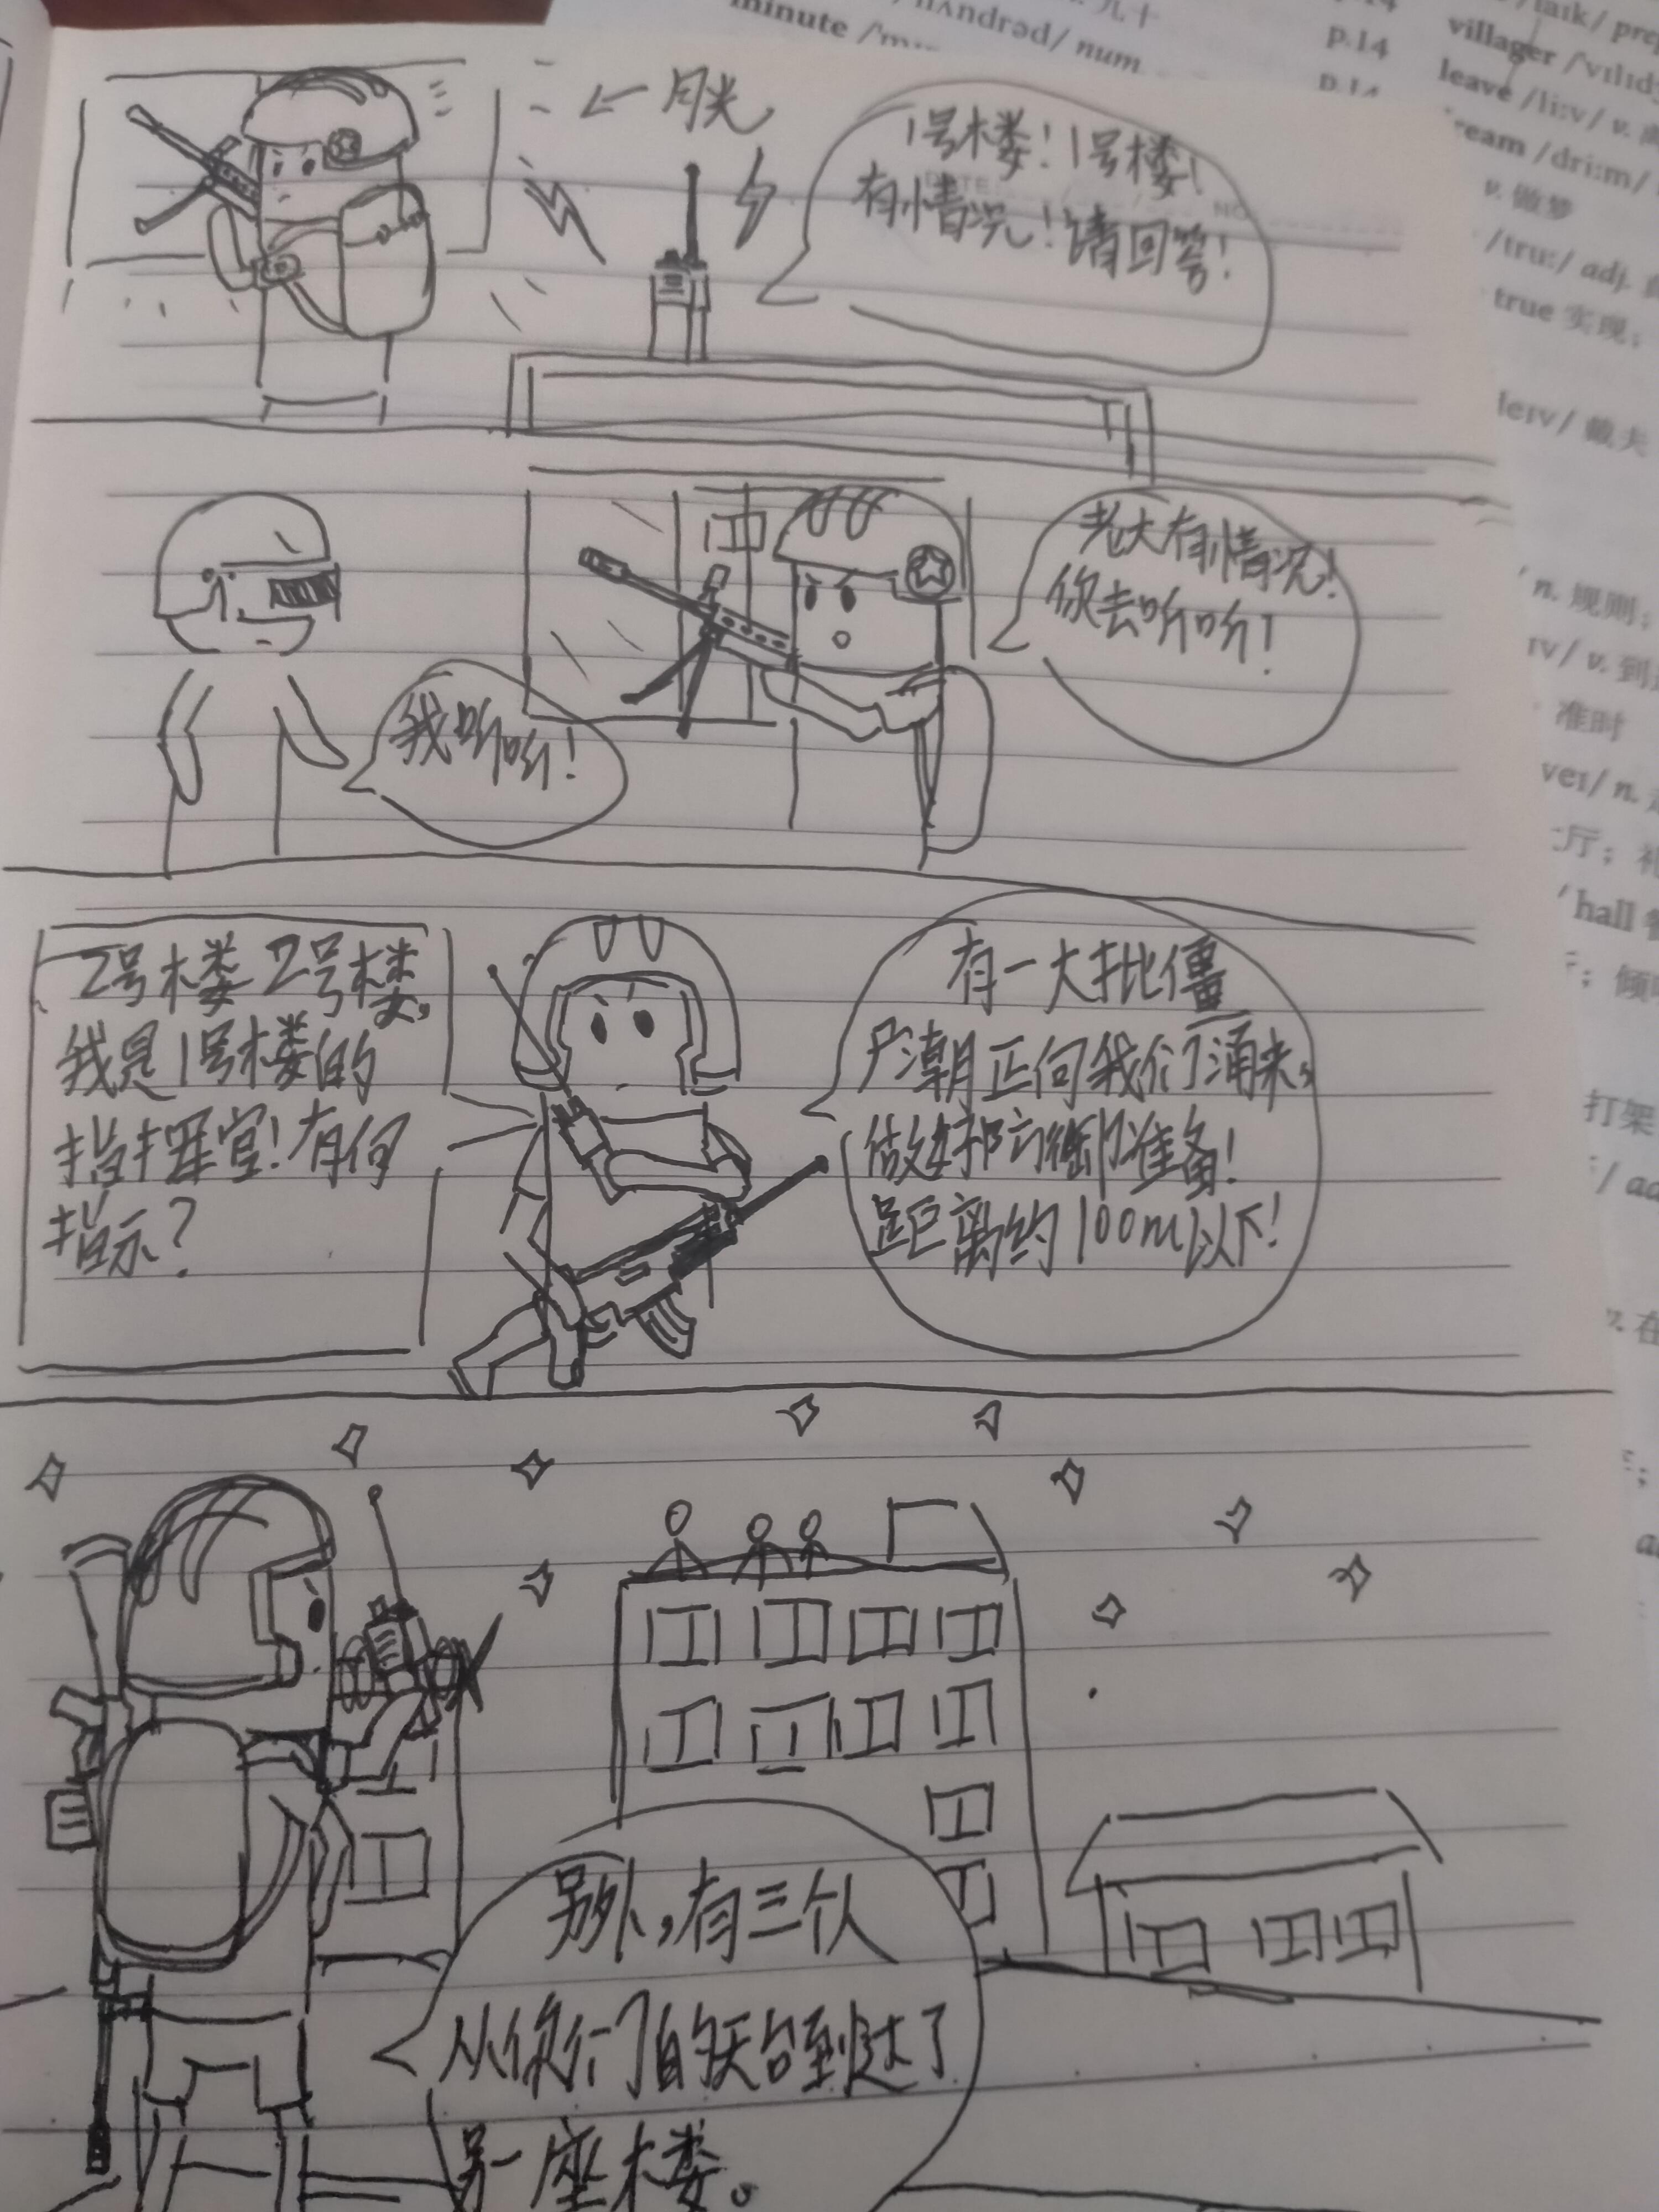 minute
/ˈhʌndrəd/ num
九十
p.14
p.14
p.14
/laik/ prep
villager /ˈvɪlɪdʒ
leave /liːv/ v. 离
ream /driːm/
v. 做梦
/truː/ adj. 真
true 实现；
leɪv/ 戴夫
n. 规则；
ɪv/ v. 到达
准时
veɪ/ n.
厅；礼
hall 餐
；倾听
打架
/ ad
v. 在
← 月光
1号楼！1号楼！
有情况！请回答！
老大有情况！
你去听听！
我听听！
2号楼 2号楼，
我是1号楼的
指挥官！有何
指示？
有一大批僵
尸潮正向我们涌来，
做好防御准备！
距离约100m以下！
另外，有三个人
从你们的天台到达了
另一座楼。